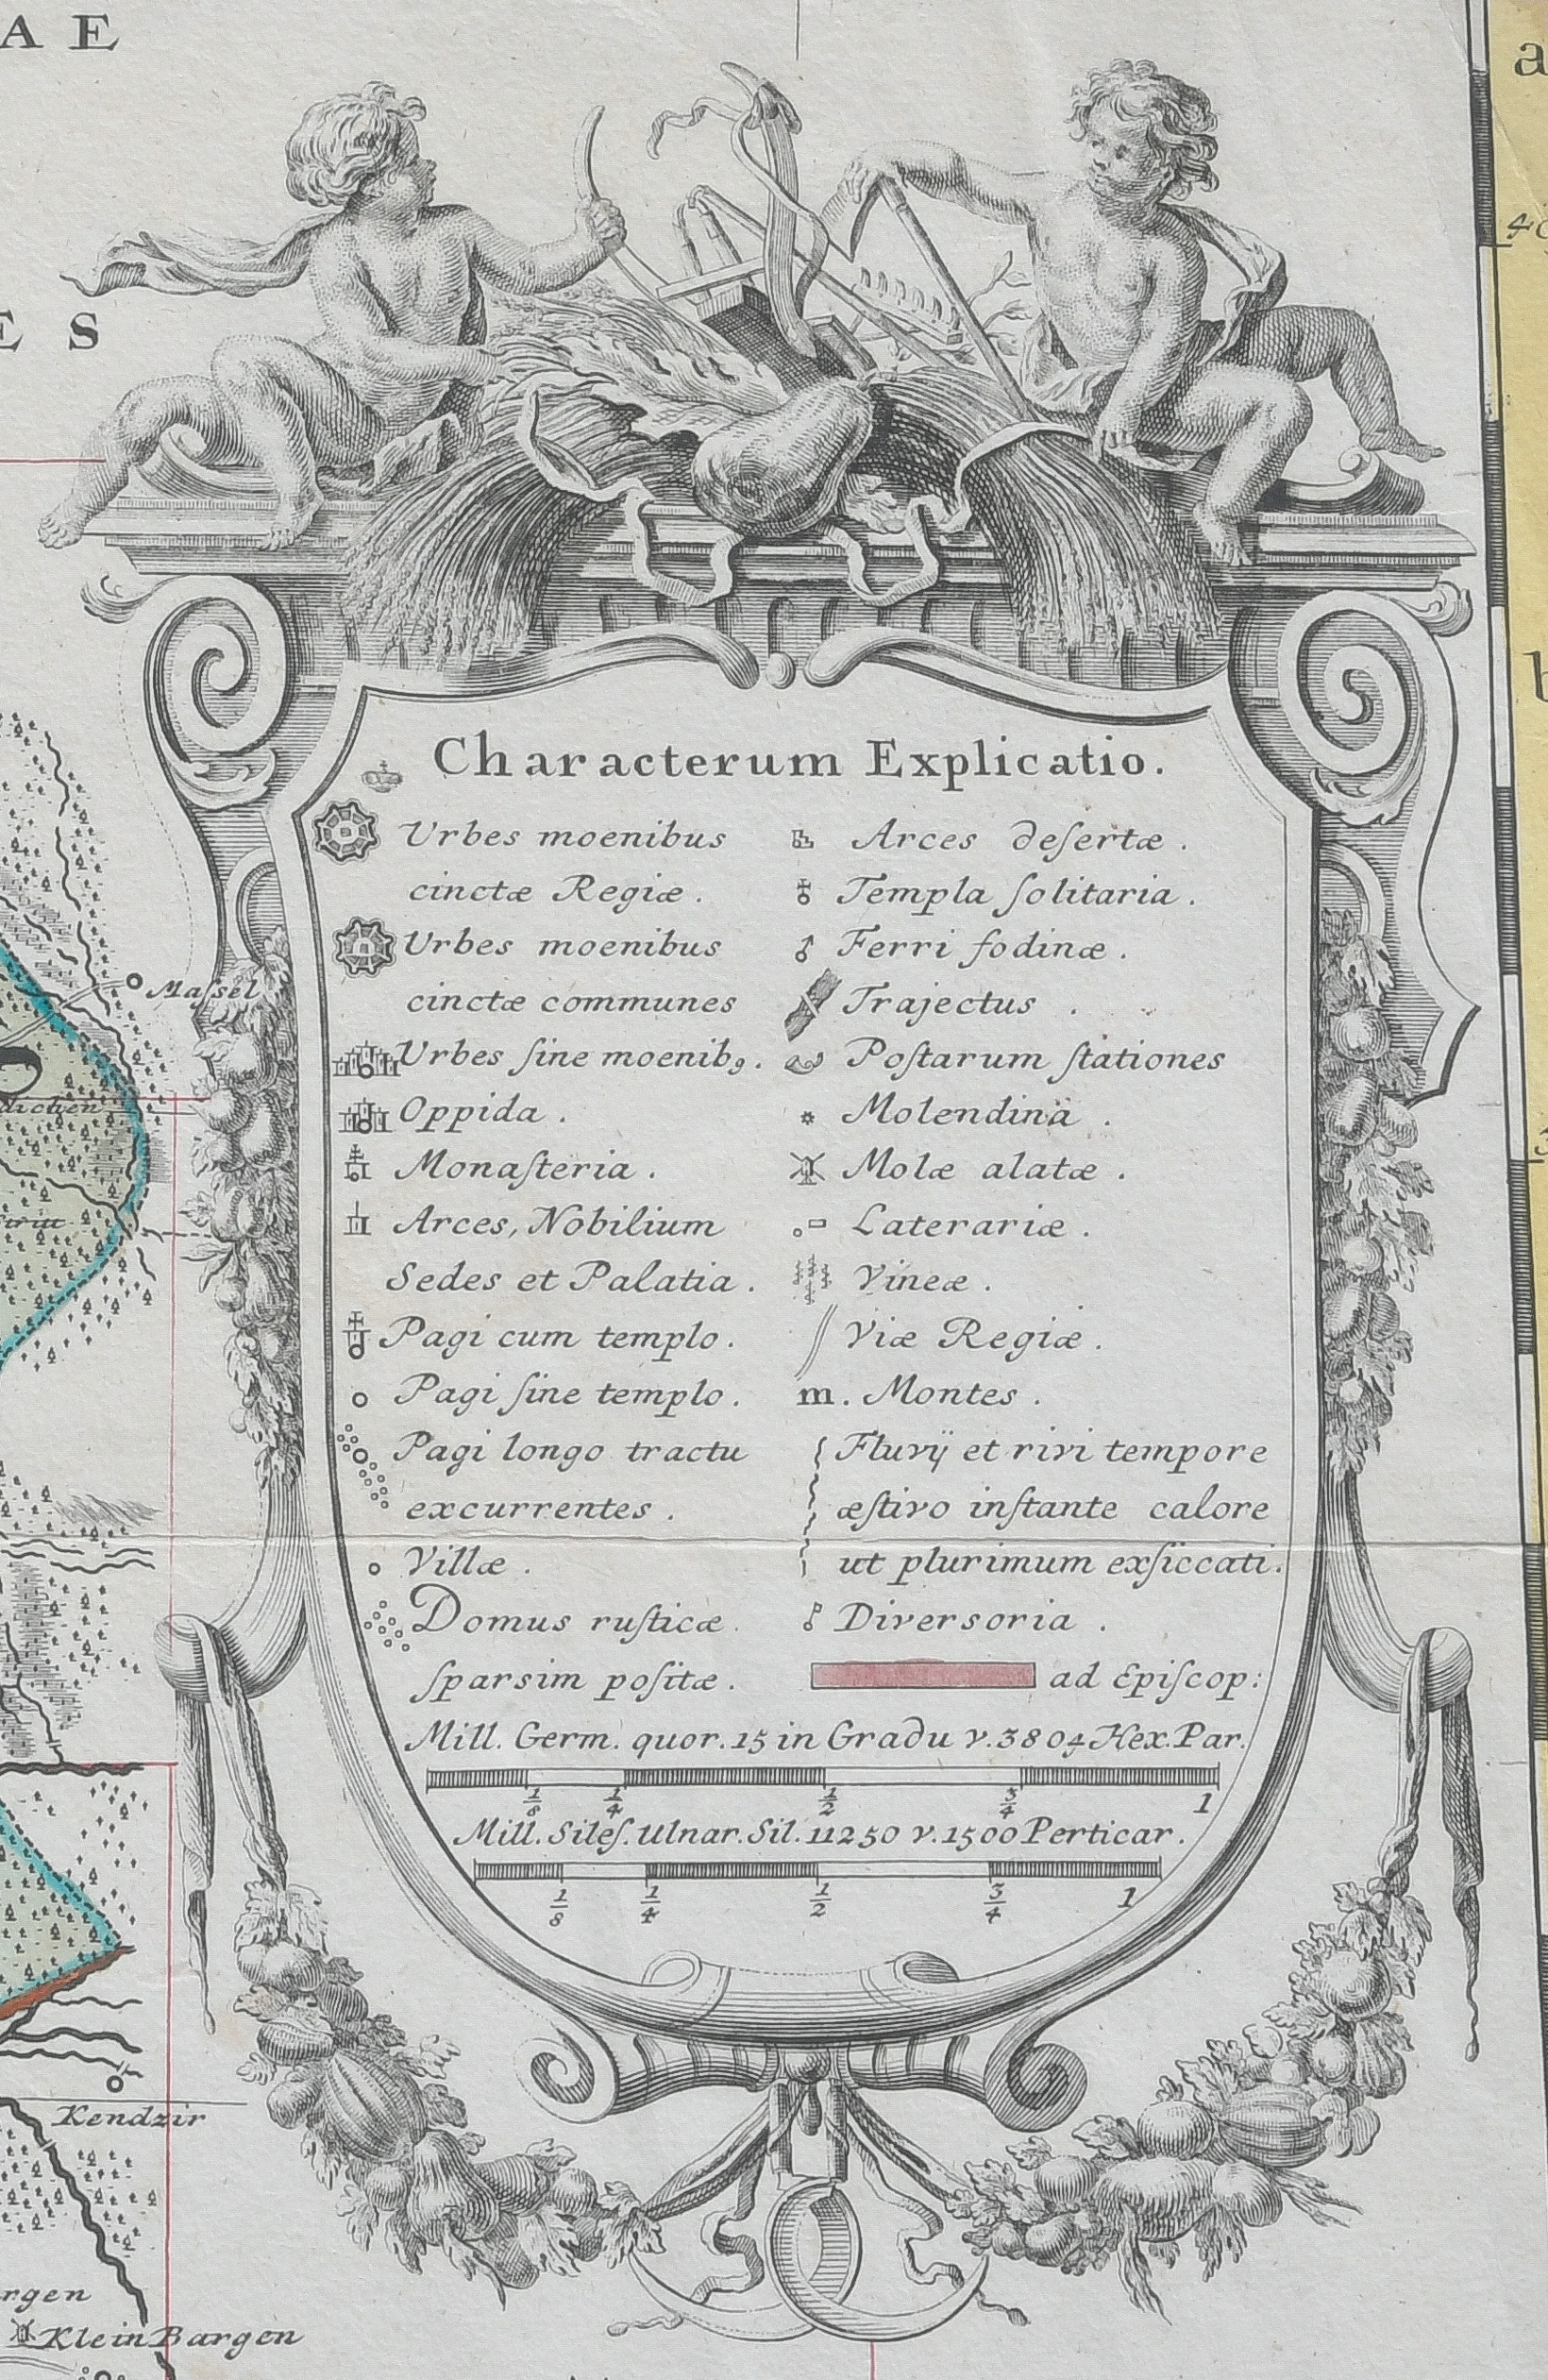 AE
a
ES
b
Characterum Explicatio.
Urbes moenibus
cinctæ Regiæ.
Urbes moenibus
cinctæ communes
Urbes ſine moenibꝰ.
Oppida.
Monaſteria.
Arces, Nobilium
Sedes et Palatia.
Pagi cum templo.
Pagi ſine templo.
Pagi longo tractu
excurrentes.
Villæ.
Domus ruſticæ
ſparsim poſitæ.
Arces deſertæ.
Templa ſolitaria.
Ferri fodinæ.
Trajectus.
Poſtarum ſtationes
Molendina.
Molæ alatæ.
Laterariæ.
Vineæ.
Viæ Regiæ.
m. Montes.
Fluvÿ et rivi tempore
æſtivo inſtante calore
ut plurimum exſiccati.
Diversoria.
ad Epiſcop:
Mill. Germ. quor. 15 in Gradu v. 3804 Hex. Par.
1/8 1/4 1/2 3/4 1
Mill. Sileſ. Ulnar. Sil. 11250 v. 1500 Perticar.
1/8 1/4 1/2 3/4 1
Maſsel
Kendzir
Klein Bargen